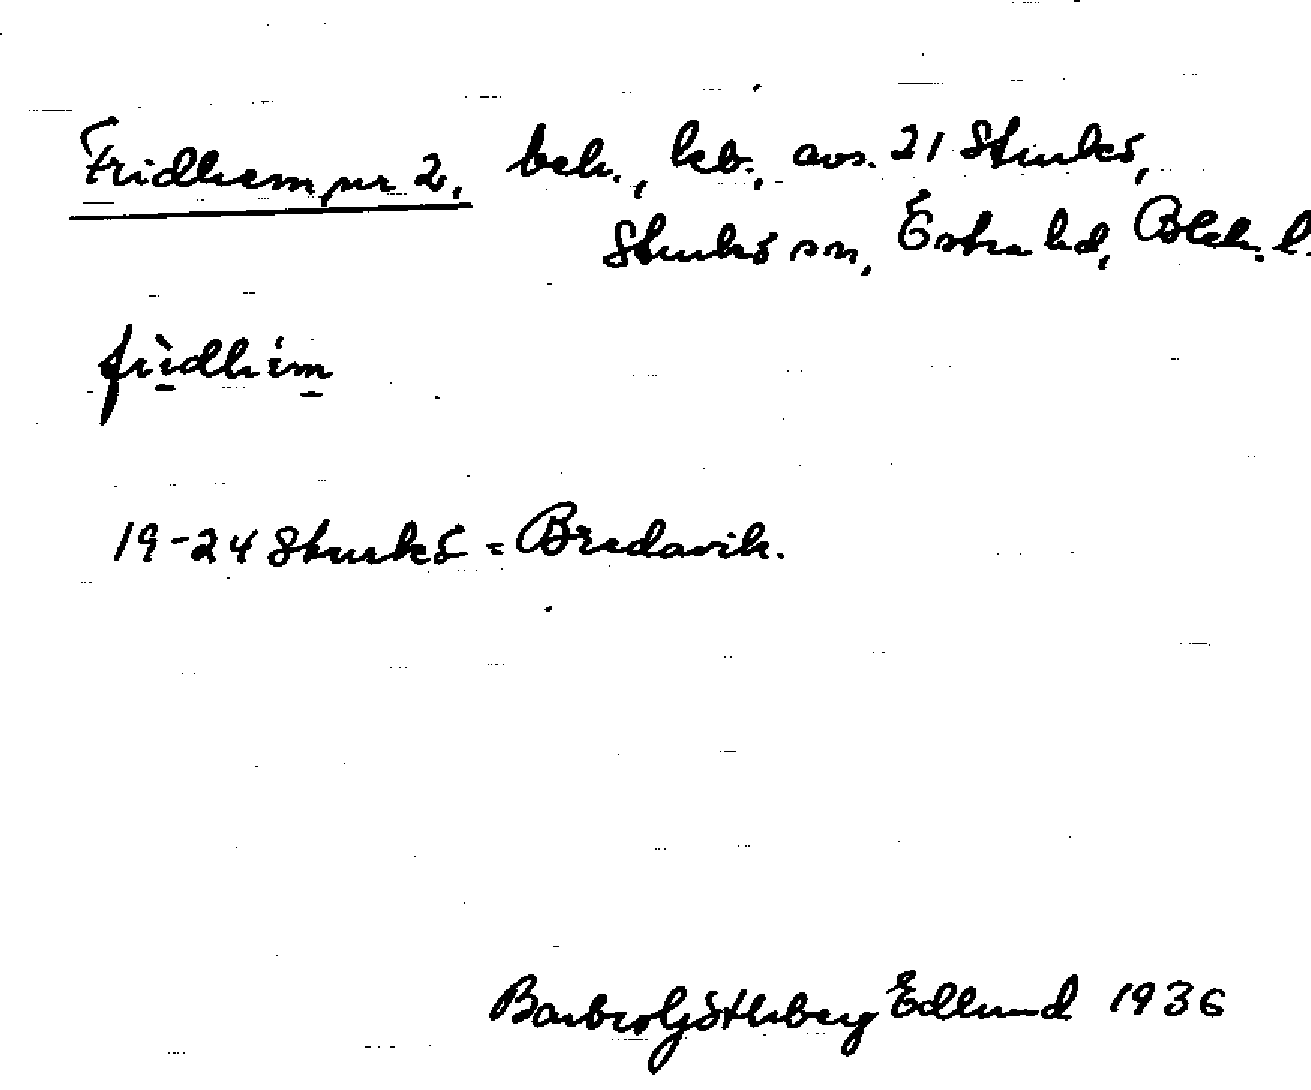 Fridhem, nr 2, beb., leb., avs. 21 Sturkö,
Sturkö sn, Östra hd, Blek. l.
frìdhem
19-24 Sturkö = Bredavik.
Barbro Götherberg Edlund 1936